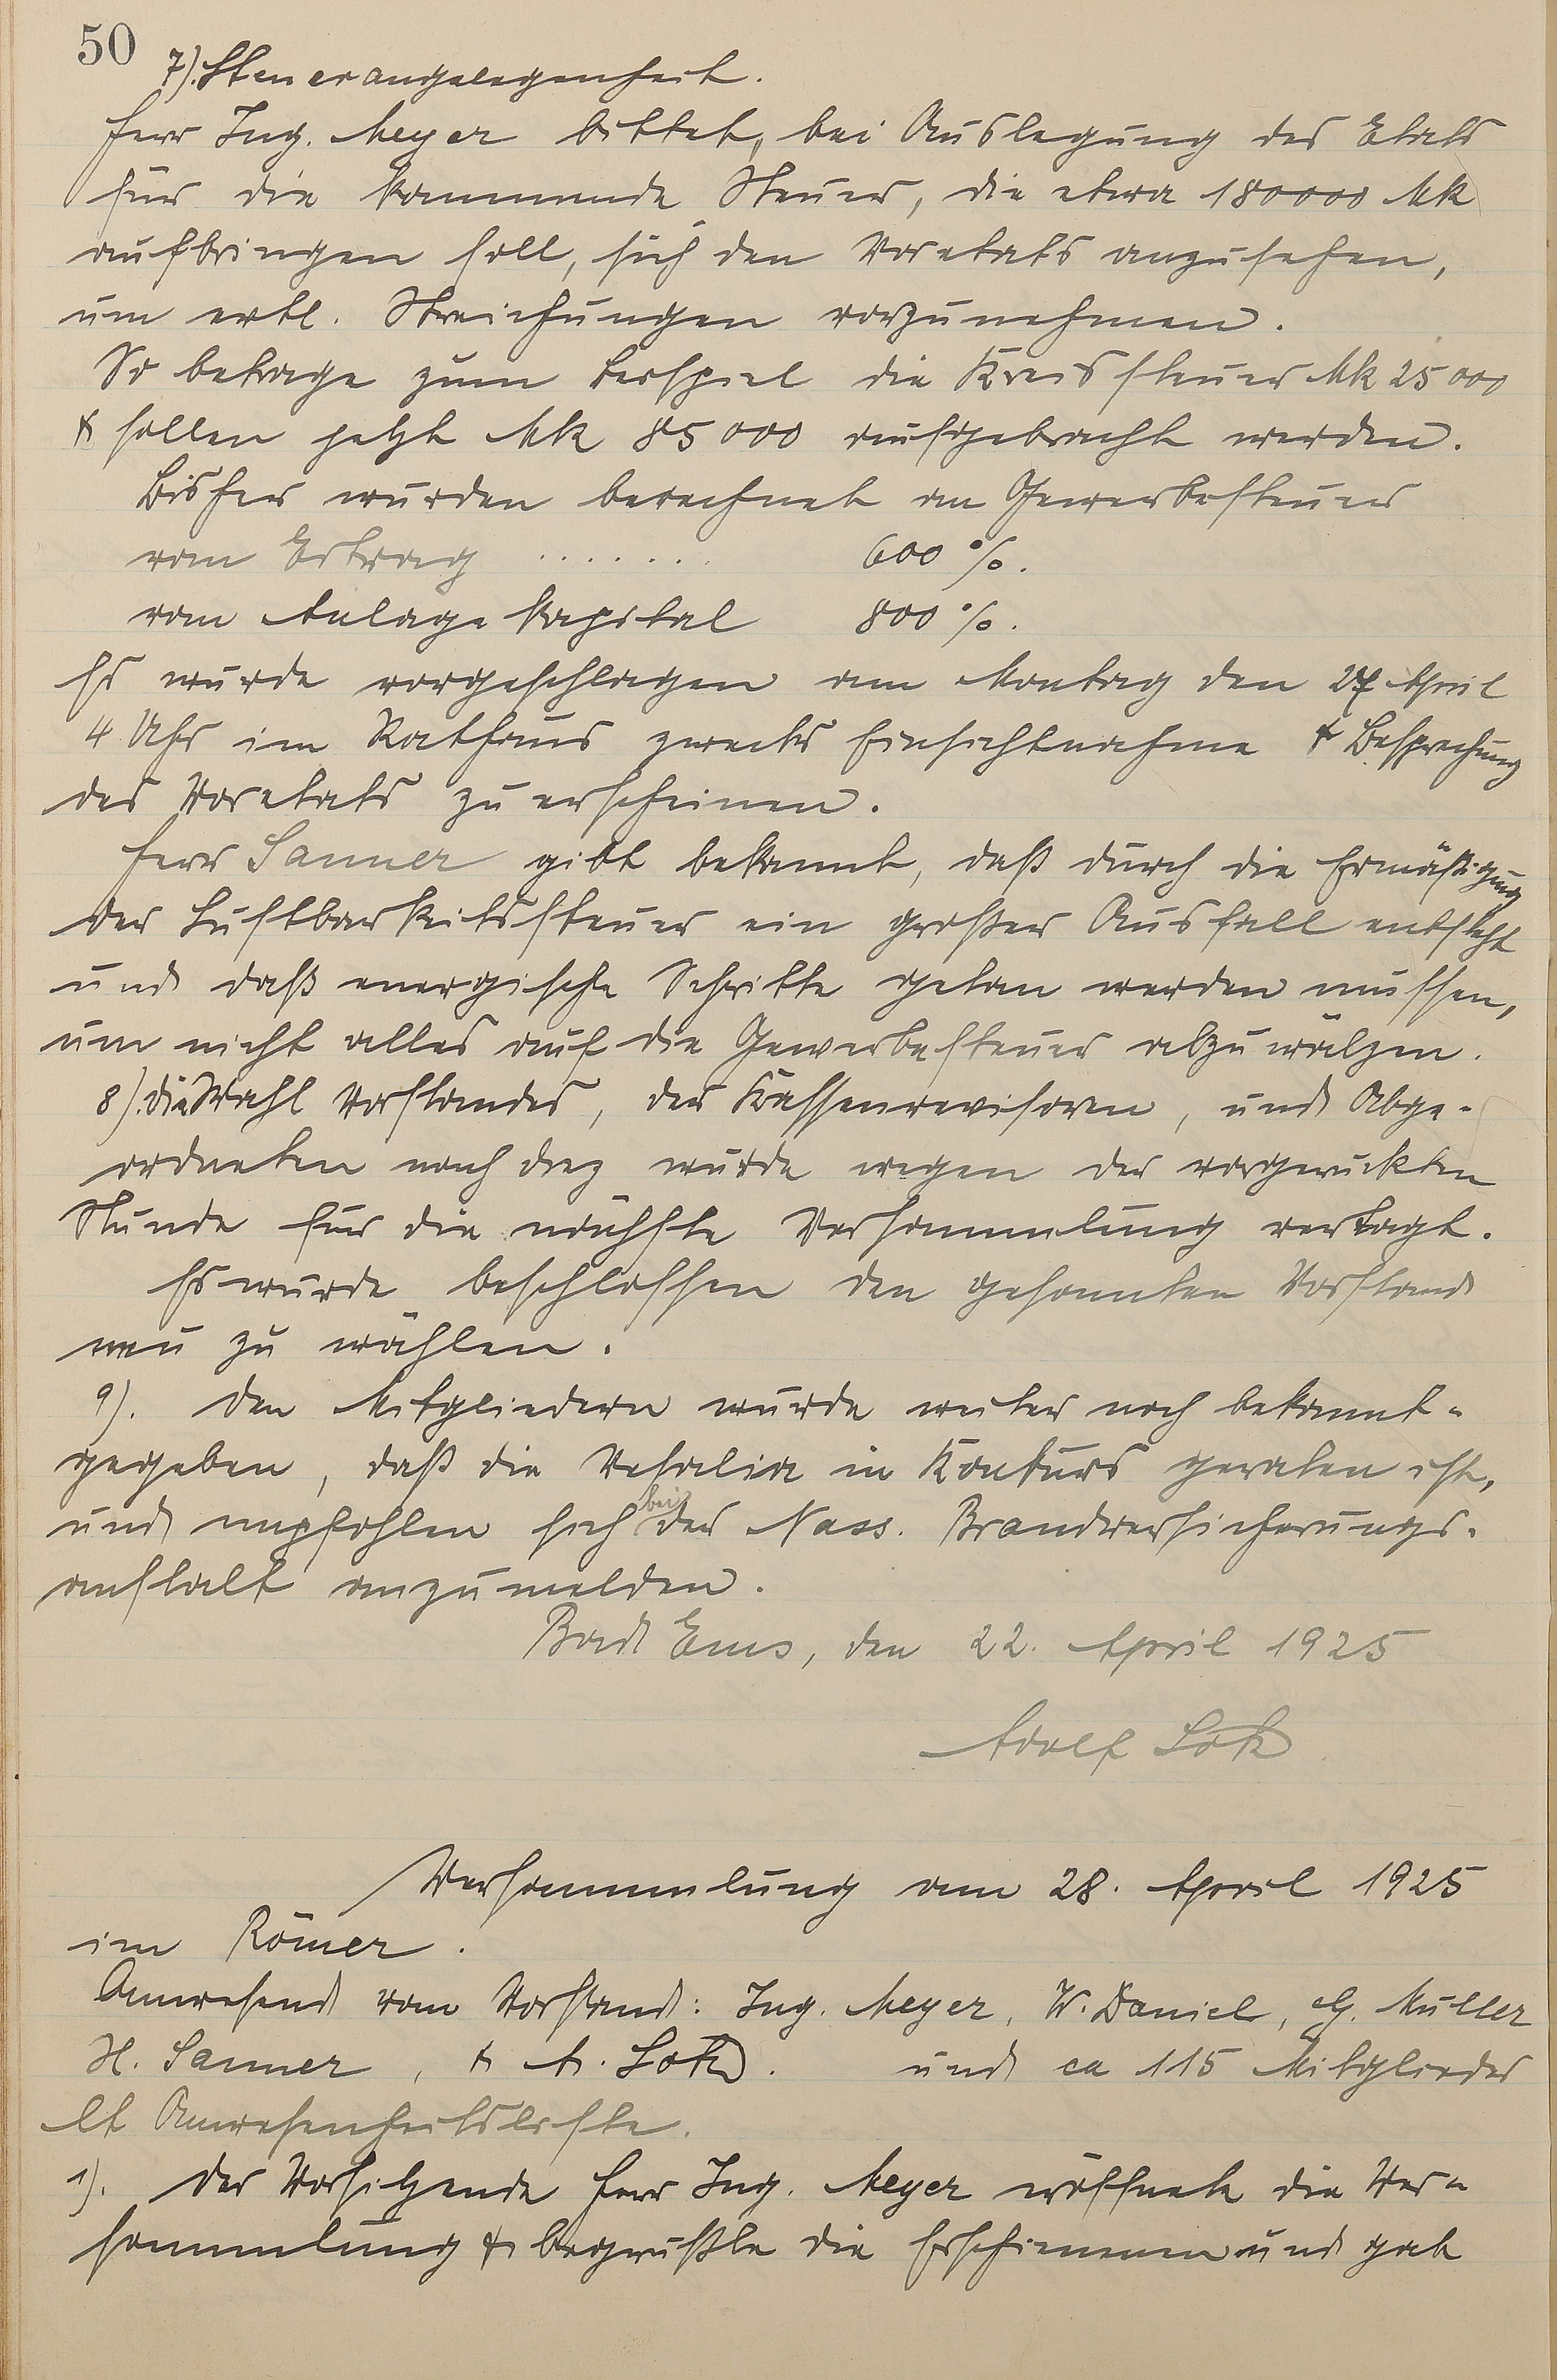 50
7). Steuerangelegenheit.
Herr Ing. Meyer bittet, bei Auslegung des Etats
für die kommende Steuer, die etwa 180000 Mk
aufbringen soll, sich den Voretats anzusehen,
um evtl. Streichungen vorzunehmen.
So betrage zum Beispiel die Kreissteuer Mk 25000
& sollen jetzt Mk 85000 aufgebracht werden.
Bisher wurden berechnet an Gewerbesteuer
vom Ertrag ....... 600 %.
vom Anlagekapital 800 %.
Es wurde vorgeschlagen am Montag den 27. April
4 Uhr im Rathaus zwecks Einsichtnahme & Besprechung
des Voretats zu erscheinen.
Herr Sanner gibt bekannt, daß durch die Ermäßigung
der Lustbarkeitssteuer ein großer Ausfall entsteht
und daß energische Schritte getan werden mussen,
um nicht alles auf die Gewerbesteuer abzuwälzen.
8). die Wahl Vorstandes, der Kassenrevisoren, und Abge-
ordneten nach Diez wurde wegen der vorgeruckten
Stunde für die nächste Versammlung vertagt.
Es wurde beschlossen den gesamten Vorstand
neu zu wählen.
9). Den Mitgliedern wurde weiter noch bekannt-
gegeben, daß die Vesalia in Konkurs geraten ist,
und empfohlen sich bei der Nass. Brandversicherungs-
anstalt anzumelden.
Bad Ems, den 22. April 1925
Adolf Lotz
Versammlung am 28. April 1925
im Römer.
Anwesend vom Vorstand: Ing. Meyer, W. Daniel, G. Müller
H. Sanner, & A. Lotz. und ca 115 Mitglieder
lt Anwesenheitsliste.
1). Der Vorsitzende Herr Ing. Meyer eröffnete die Ver-
sammlung & begrußte die Erschienenen und gab